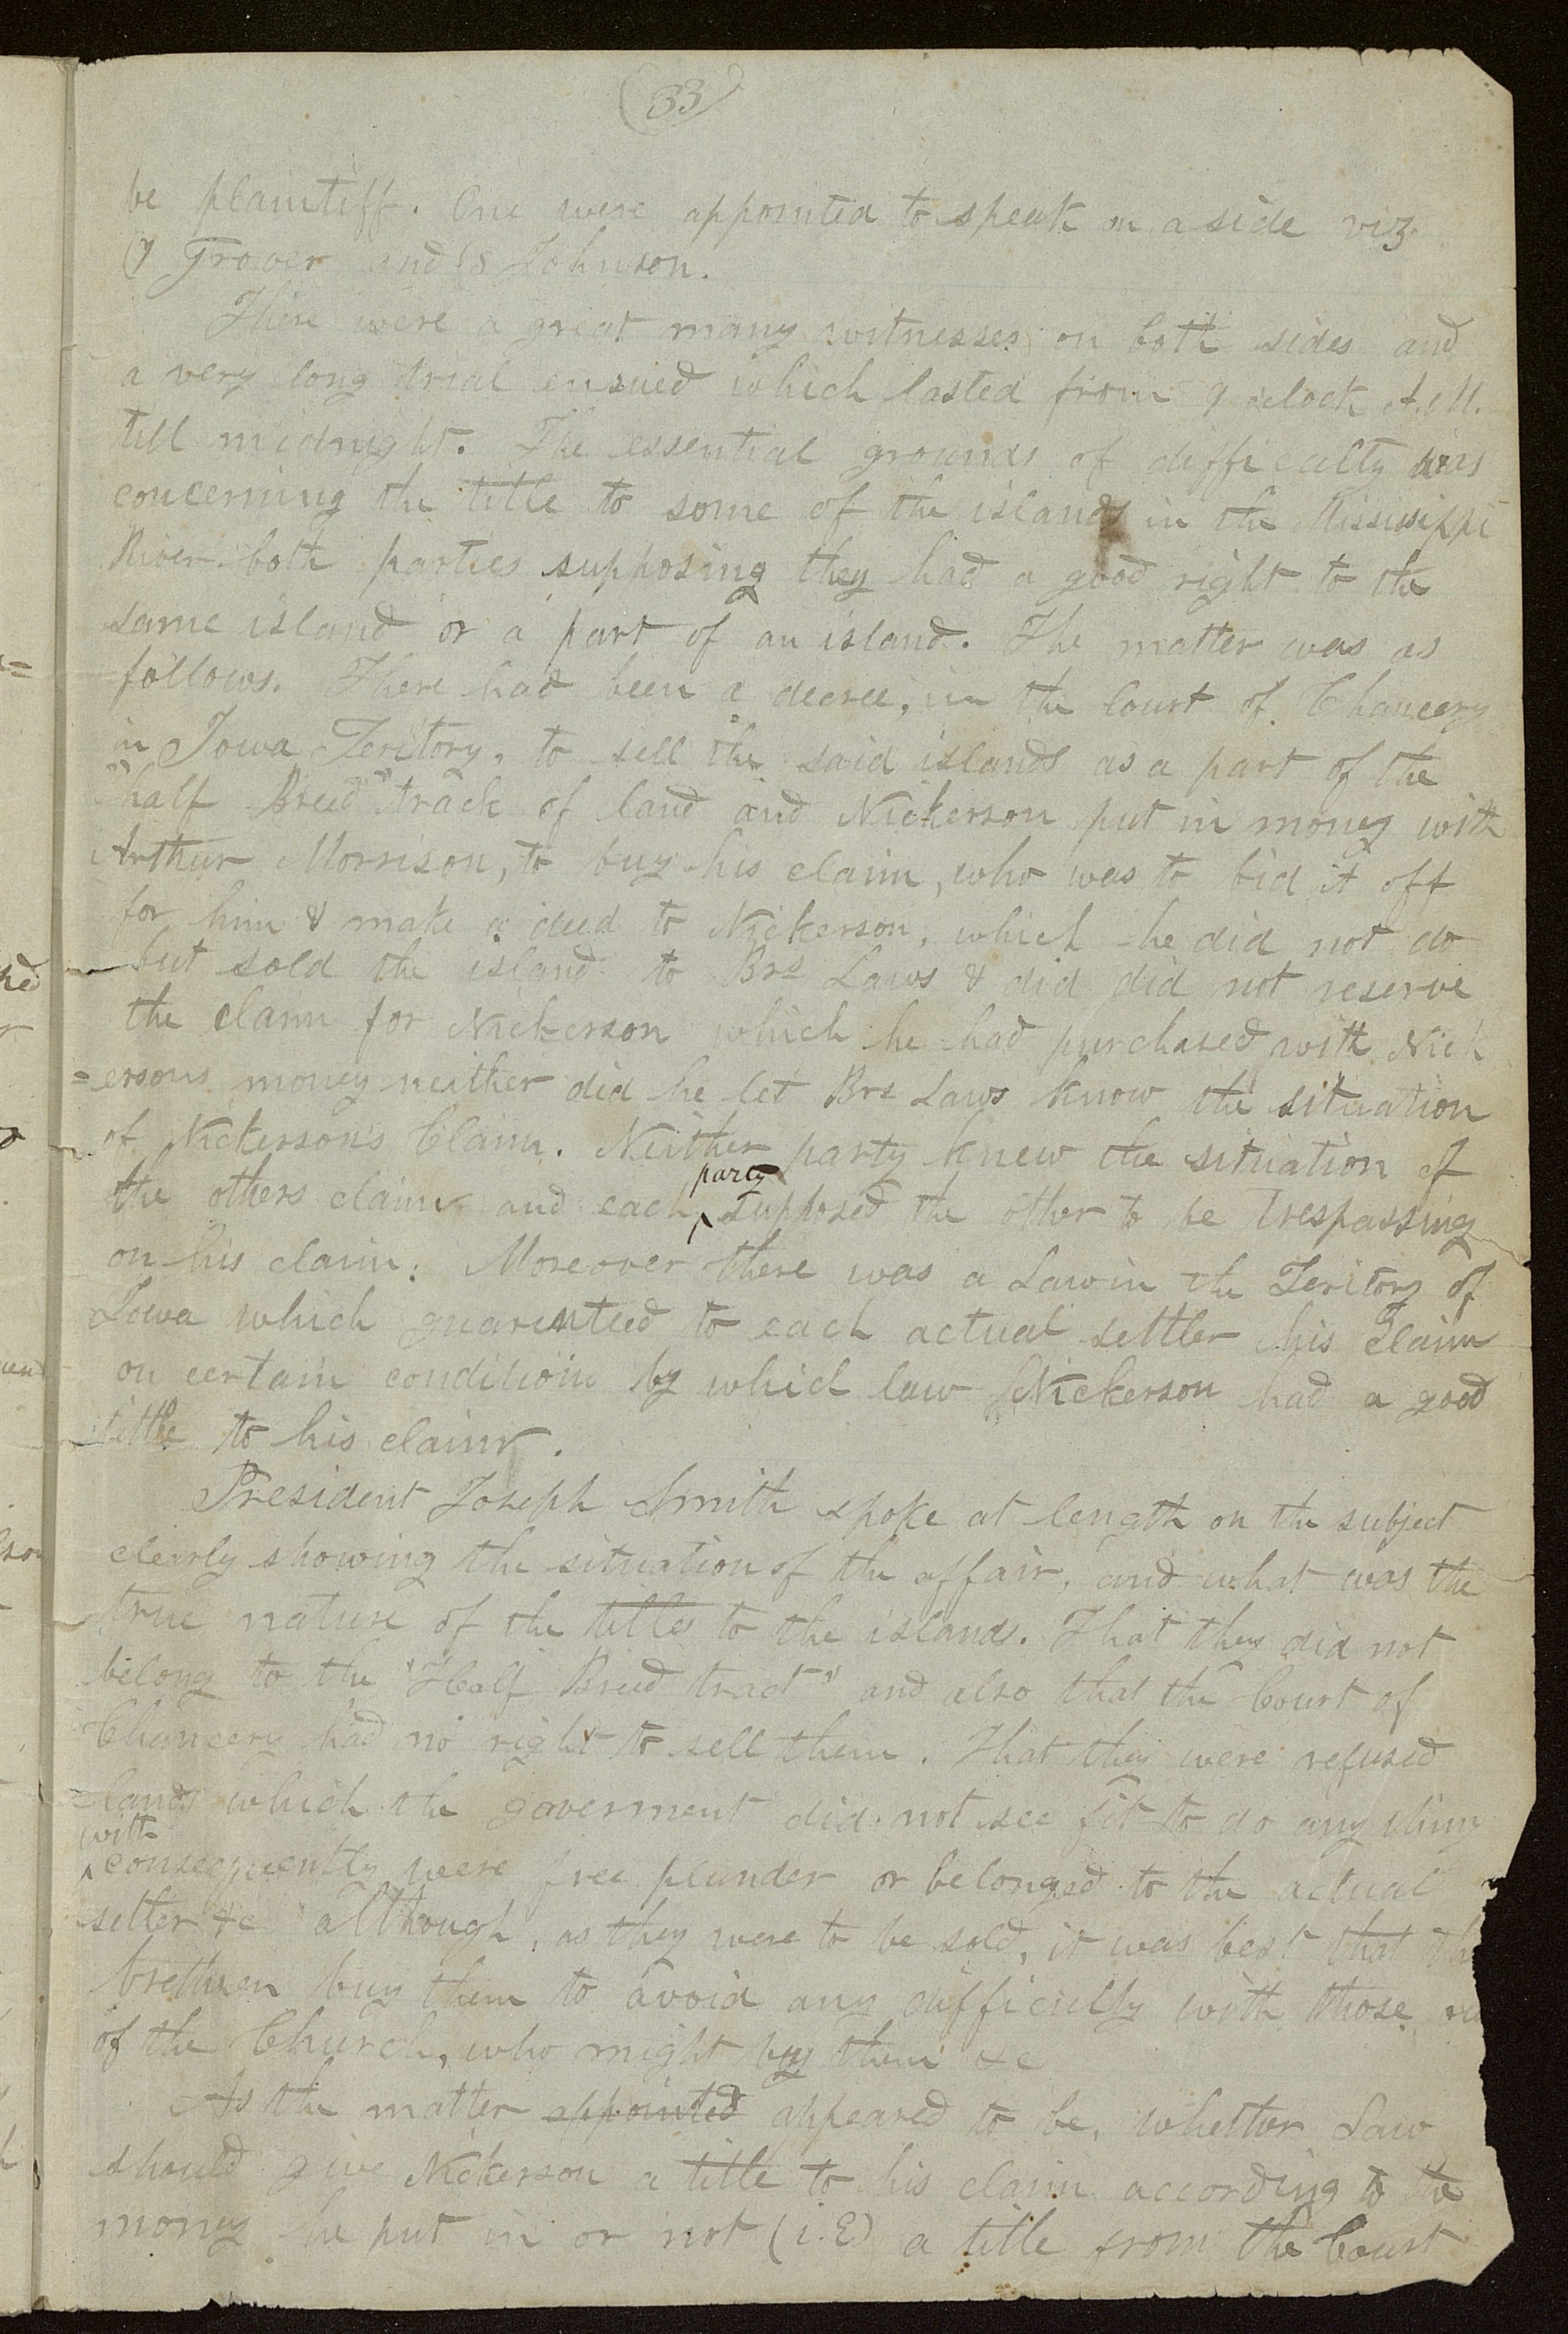 (33)
be plaintiff. One were appointed to speak on a side viz.
(7 Grover and (8 Johnson.
There were a great many witnesses on both sides and
a very long trial ensued which lasted from 9 oclock A.M.
till midnight. The essential grounds of difficulty was
concerning the title to some of the islands in the Mississippi
River. both parties supposing they had a good right to the
same island or a part of an island. The matter was as
follows. There had been a decree, in the Court of Chancery
in Iowa Teritory, to sell the said islands as a part of the
"half Breed" track of land and Nickerson put in money with
Arthur Morrison, to buy his claim, who was to bid it off
for him & make a deed to Nickerson, which he did not do
but sold the island to Brs Laws & did did not reserve
the claim for Nickerson which he had purchased with Nick
=ersons money neither did he let Brs Laws know the situation
of Nickerson's Claim. Neither party knew the situation of
the others claim and each party supposed the other to be trespassing
on his claim. Moreover there was a Law in the Teritory of
Iowa which guarinteed to each actual settler his claim
on certain conditions by which law Nickerson had a good
tittle to his claim.
President Joseph Smith spoke at length on the subject
clearly showing the situation of the affair, and what was the
true nature of the titles to the islands. That they did not
belong to the "Half Breed tract" and also that the Court of
Chancery had no right to sell them. That they were refused
lands which the goverment did not see fit to do any thing
with consequently were free plunder or belonged to the actual
setler &c although, as they were to be sold, it was best that th
brethren buy them to avoid any difficulty with those
of the Church, who might buy them &c
As the matter appointed appeared to be, whether Law
should give Nickerson a title to his claim according to the
money he put in or not (i.E) a title from the Court